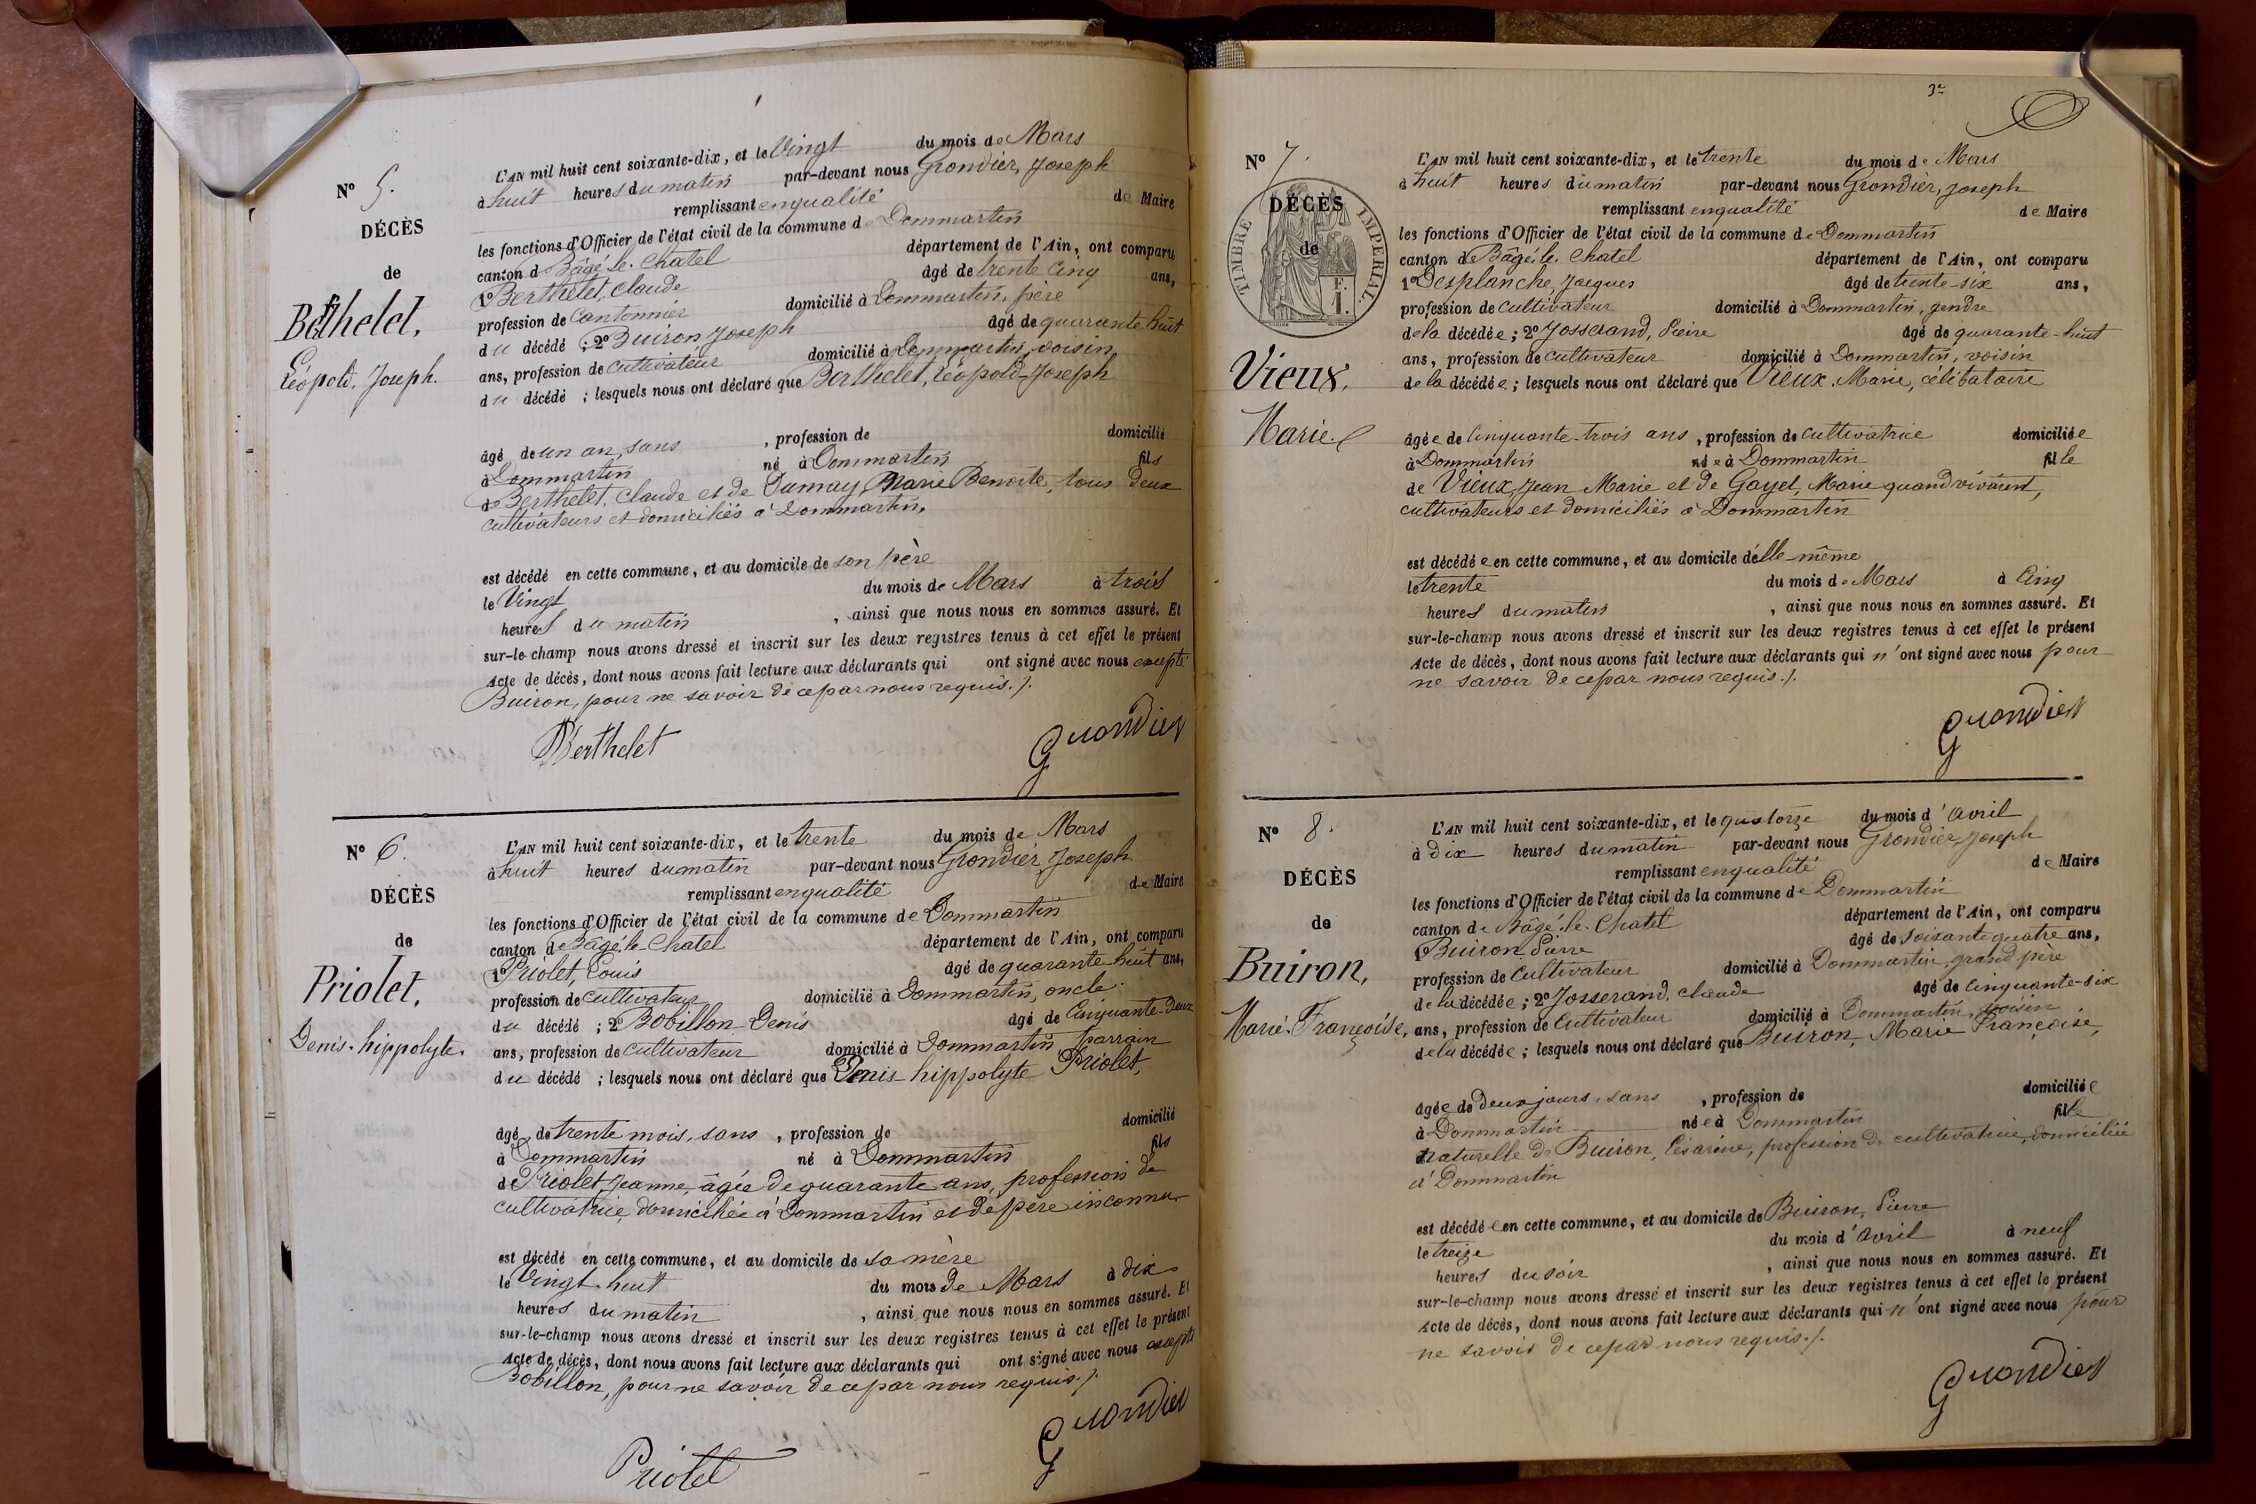 N° 5.
DÉCÈS
de
Berthelet,
Léopold. Joseph.
L'AN mil huit cent soixante-dix, et le Vingt du mois de Mars
à huit heures du matin par-devant nous Grondier, Joseph
remplissant en qualité de Maire
les fonctions d'Officier de l'état civil de la commune de Dommartin
canton de Bâgé-le-Chatel département de l'Ain, ont comparu
1° Berthelet, Claude âgé de trente cinq ans,
profession de Cantonnier domicilié à Dommartin, père
du décédé ; 2° Buiron Joseph âgé de quarante huit
ans, profession de cultivateur domicilié à Dommartin, voisin
du décédé ; lesquels nous ont déclaré que Berthelet, Léopold-Joseph
âgé de un an, sans , profession de domicilié
à Dommartin né à Dommartin fils
de Berthelet, Claude et de Damay, Marie Benoîte, tous deux
cultivateurs et domiciliés à Dommartin,
est décédé en cette commune, et au domicile de son père
le Vingt du mois de Mars à trois
heures du matin , ainsi que nous nous en sommes assuré. Et
sur-le-champ nous avons dressé et inscrit sur les deux registres tenus à cet effet le présent
Acte de décès, dont nous avons fait lecture aux déclarants qui ont signé avec nous excepté
Buiron, pour ne savoir de ce par nous requis./.
Berthelet Grondier
N° 6.
DÉCÈS
de
Priolet,
Denis-hippolyte.
L'AN mil huit cent soixante-dix, et le trente du mois de Mars
à huit heures du matin par-devant nous Grondier, Joseph
remplissant en qualité de Maire
les fonctions d'Officier de l'état civil de la commune de Dommartin
canton de Bâgé-le-Chatel département de l'Ain, ont comparu
1° Priolet, Louis âgé de quarante-huit ans,
profession de cultivateur domicilié à Dommartin, oncle
du décédé ; 2° Bobillon Denis âgé de Cinquante-Deux
ans, profession de cultivateur domicilié à Dommartin parrain
du décédé ; lesquels nous ont déclaré que Denis-hippolyte Priolet,
âgé de trente mois, sans , profession de domicilié
à Dommartin né à Dommartin fils
de Priolet Jeanne, âgée de quarante ans, profession de
cultivatrice, domiciliée à Dommartin et de père inconnu
est décédé en cette commune, et au domicile de sa mère
le Vingt-huit du mois de Mars à dix
heures du matin , ainsi que nous nous en sommes assuré. Et
sur-le-champ nous avons dressé et inscrit sur les deux registres tenus à cet effet le présent
Acte de décès, dont nous avons fait lecture aux déclarants qui ont signé avec nous excepté
Bobillon, pour ne savoir de ce par nous requis./.
Priolet Grondier
3e
N° 7.
DÉCÈS
de
TIMBRE IMPERIAL
F.
1.
Vieux.
Marie.
L'AN mil huit cent soixante-dix, et le trente du mois de Mars
à huit heures du matin par-devant nous Grondier, Joseph
remplissant en qualité de Maire
les fonctions d'Officier de l'état civil de la commune de Dommartin
canton de Bâgé-le-Chatel département de l'Ain, ont comparu
1° Desplanche, Jacques âgé de trente-six ans,
profession de cultivateur domicilié à Dommartin, gendre
de la décédée ; 2° Josserand, Pierre âgé de quarante-huit
ans, profession de cultivateur domicilié à Dommartin, voisin
de la décédée ; lesquels nous ont déclaré que Vieux Marie, célibataire
âgée de Cinquante-trois ans , profession de cultivatrice domiciliée
à Dommartin née à Dommartin fille
de Vieux, Jean Marie et de Gayet, Marie quand vivaient,
cultivateurs et domiciliés à Dommartin
est décédée en cette commune, et au domicile d'elle-même
le trente du mois de Mars à Cinq
heures du matin , ainsi que nous nous en sommes assuré. Et
sur-le-champ nous avons dressé et inscrit sur les deux registres tenus à cet effet le présent
Acte de décès, dont nous avons fait lecture aux déclarants qui n'ont signé avec nous pour
ne savoir de ce par nous requis./.
Grondier
N° 8.
DÉCÈS
de
Buiron,
Marie-Françoise,
L'AN mil huit cent soixante-dix, et le quatorze du mois d'avril
à dix heures du matin par-devant nous Grondier, Joseph
remplissant en qualité de Maire
les fonctions d'Officier de l'état civil de la commune de Dommartin
canton de Bâgé-le-Chatel département de l'Ain, ont comparu
1° Buiron Pierre âgé de soixante quatre ans,
profession de cultivateur domicilié à Dommartin, grand père
de la décédée ; 2° Josserand, Claude âgé de Cinquante-six
ans, profession de Cultivateur domicilié à Dommartin, voisin
de la décédée ; lesquels nous ont déclaré que Buiron, Marie Françoise,
âgée de Deux jours, sans , profession de domiciliée
à Dommartin née à Dommartin fille
naturelle de Buiron, Césarine, profession de cultivatrice, domiciliée
à Dommartin
est décédée en cette commune, et au domicile de Buiron, Pierre
le treize du mois d'avril à neuf
heures du soir , ainsi que nous nous en sommes assuré. Et
sur-le-champ nous avons dressé et inscrit sur les deux registres tenus à cet effet le présent
Acte de décès, dont nous avons fait lecture aux déclarants qui n'ont signé avec nous pour
ne savoir de ce par nous requis./.
Grondier